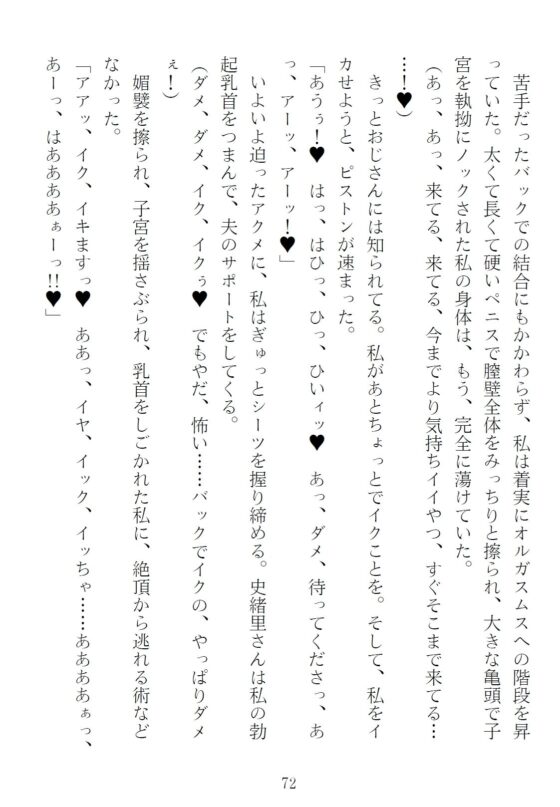 苦手だったバックでの結合にもかかわらず、私は着実にオルガスムスへの階段を昇
っていた。太くて長くて硬いペニスで膣壁全体をみっちりと擦られ、大きな亀頭で子
宮を執拗にノックされた私の身体は、もう、完全に蕩けていた。
(あっ、あっ、来てる、来てる、今までより気持ちイイやつ、すぐそこまで来てる…
…!♥)
きっとおじさんには知られてる。私があとちょっとでイクことを。そして、私をイ
カせようと、ピストンが速まった。
「あうぅ!♥ はっ、はひっ、ひっ、ひいィッ♥ あっ、ダメ、待ってくださっ、あ
っ、アーッ、アーッ!♥」
いよいよ迫ったアクメに、私はぎゅっとシーツを握り締める。史緒里さんは私の勃
起乳首をつまんで、夫のサポートをしてくる。
(ダメ、ダメ、イク、イクぅ♥ でもやだ、怖い……バックでイクの、やっぱりダメ
ぇ!)
媚襞を擦られ、子宮を揺さぶられ、乳首をしごかれた私に、絶頂から逃れる術など
なかった。
「アアッ、イク、イキますっ♥ ああっ、イヤ、イック、イッちゃ……ああああぁっ、
あーっ、はああああぁーっ!!♥」
72